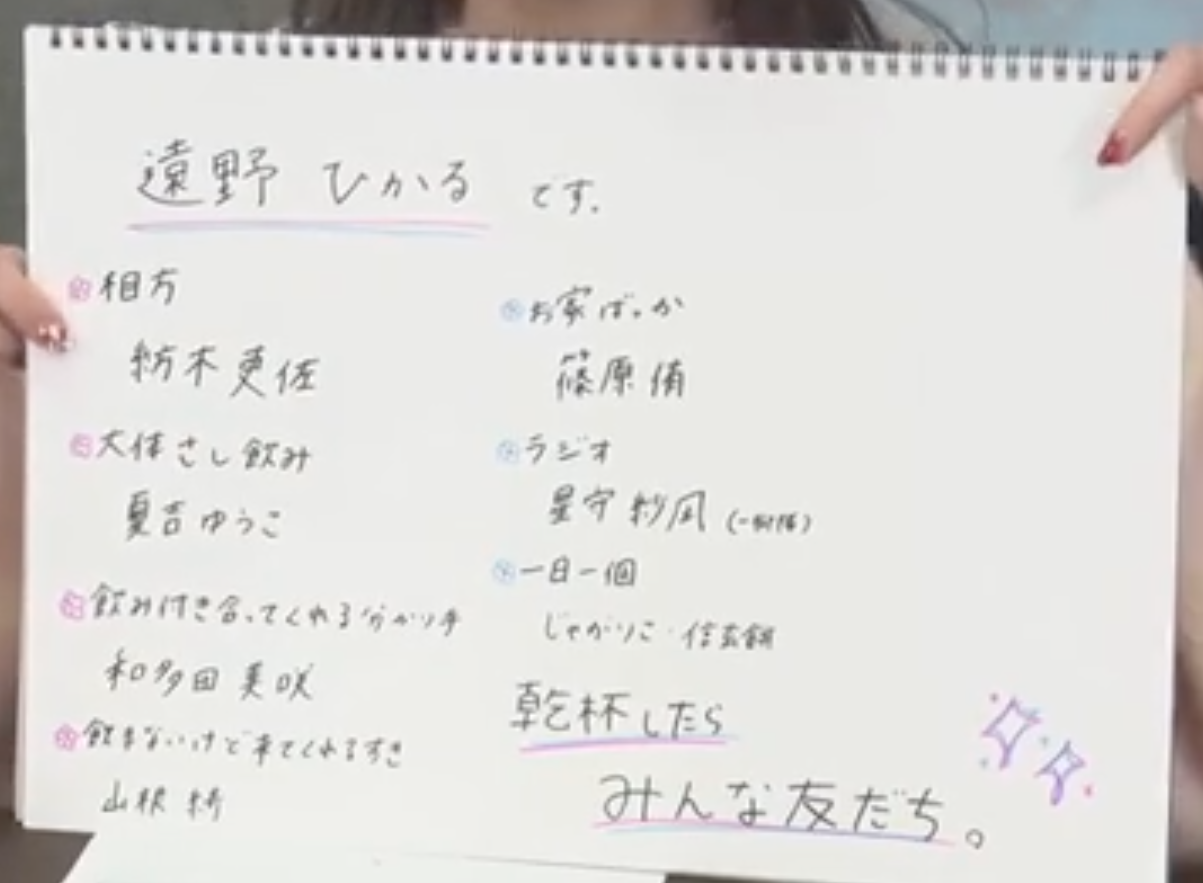 遠野 ひかる です.
相方
紡木吏佐
大体さし飲み
夏吉ゆうこ
飲み付き合ってくれる分かり手
和多田美咲
飲まないけど来てくれるすき
山根 綺
お家ばっか
篠原侑
ラジオ
星守紗凪
一日一個
じゃがりこ・信玄餅
乾杯したら
みんな友だち。